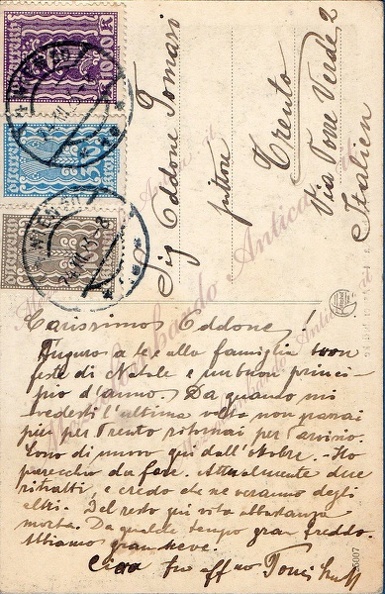 Sig Eddone Tomasi
pittore
Trento
Via Torre Verde 2
Italien
1000 K
WIEN
WIEN
Carissimo Eddone!
Auguro a te e alla famiglia buon
feste di Natale e un buon princi-
pio d'anno. Da quando mi
vedesti l'ultima volta non passai
più per Trento ritornai per
Sono di nuovo qui dall'ottobre. Ho
parecchio da fare. Attualmente due
ritratti, e credo che ne verranno degli
altri. Del resto qui vita abbastanza
morta. Da qualche tempo gran freddo.
Abbiamo gran neve.
Ciao tuo aff mo